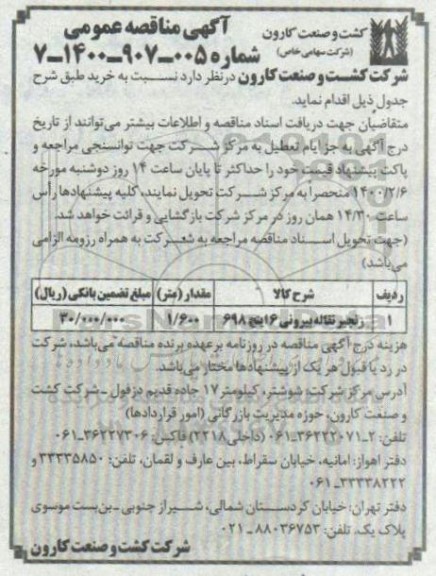 کشت و صنعت کارون
(شرکت سهامی خاص)
آگهی مناقصه عمومی
شماره ۰۰۵-۹۰۷-۱۴۰۰-۷
شرکت کشت و صنعت کارون در نظر دارد نسبت به خرید طبق شرح
جدول ذیل اقدام نماید.
متقاضیان جهت دریافت اسناد مناقصه و اطلاعات بیشتر می‌توانند از تاریخ
درج آگهی به جز ایام تعطیل به مرکز شرکت جهت توانسنجی مراجعه و
پاکت پیشنهاد قیمت خود را حداکثر تا پایان ساعت ۱۴ روز دوشنبه مورخه
۱۴۰۰/۲/۶ منحصراً به مرکز شرکت تحویل نمایند، کلیه پیشنهادها رأس
ساعت ۱۴/۳۰ همان روز در مرکز شرکت بازگشایی و قرائت خواهد شد.
(جهت تحویل اسناد مناقصه مراجعه به شرکت به همراه رزومه الزامی
می‌باشد)
ردیف شرح کالا مقدار (متر) مبلغ تضمین بانکی (ریال)
۱ زنجیر نقاله بیرونی ۶ اینچ ۶۹۸ ۱/۶۰۰ ۳۰/۰۰۰/۰۰۰
هزینه درج آگهی مناقصه در روزنامه بر عهده برنده مناقصه می‌باشد، شرکت
در رد یا قبول هر یک از پیشنهادها مختار می‌باشد.
آدرس مرکز شرکت: شوشتر، کیلومتر ۱۷ جاده قدیم دزفول - شرکت کشت
و صنعت کارون، حوزه مدیریت بازرگانی (امور قراردادها)
تلفن: ۲-۳۶۲۲۲۰۷۱-۰۶۱ (داخلی ۲۲۱۸) فاکس: ۳۶۲۲۷۳۰۶-۰۶۱
دفتر اهواز: امانیه، خیابان سقراط، بین عارف و لقمان، تلفن: ۳۳۳۳۵۸۵۰ و
۳۳۳۳۸۲۲۲-۰۶۱
دفتر تهران: خیابان کردستان شمالی، شیراز جنوبی - بن‌بست موسوی
پلاک یک، تلفن: ۸۸۰۳۶۷۵۳-۰۲۱
شرکت کشت و صنعت کارون